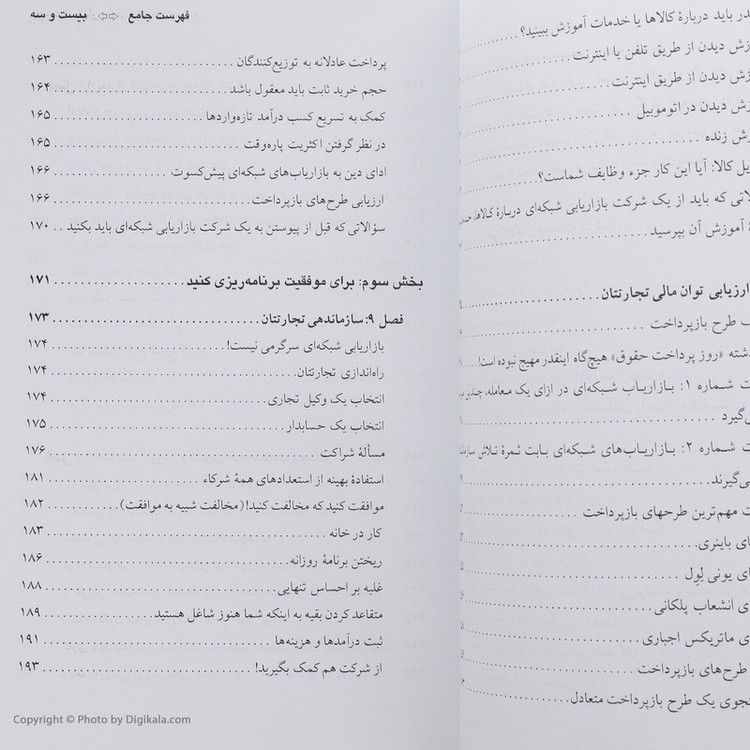 در باید دربارهٔ کالاها یا خدمات آموزش ببینید؟
ش دیدن از طریق تلفن یا اینترنت
ش دیدن از طریق اینترنت
ش دیدن در اتوموبیل
ش زنده
یل کالا: آیا این کار جزء وظایف شماست؟
لاتی که باید از یک شرکت بازاریابی شبکه‌ای دربارهٔ کالاها،
آموزش آن بپرسید
ارزیابی توان مالی تجارتتان
ک طرح بازپرداخت
شته «روز پرداخت حقوق» هیچ‌گاه اینقدر مهیج نبوده است!
ت شماره ۱: بازاریاب شبکه‌ای در ازای یک معامله،
ی‌گیرد
ت شماره ۲: بازاریاب‌های شبکه‌ای بابت ثمرهٔ تلاش
ی‌گیرند
ت مهم‌ترین طرحهای بازپرداخت
ای باینری
ای یونی لِوِل
ای انشعاب پلکانی
ی ماتریکس اجباری
طرح‌های بازپرداخت
جوی یک طرح بازپرداخت متعادل
فهرست جامع ⇦⇨ بیست و سه
پرداخت عادلانه به توزیع‌کنندگان ۱۶۳
حجم خرید ثابت باید معقول باشد ۱۶۴
کمک به تسریع کسب درآمد تازه‌واردها ۱۶۵
در نظر گرفتن اکثریت پاره‌وقت ۱۶۵
ادای دین به بازاریاب‌های شبکه‌ای پیش‌کسوت ۱۶۶
ارزیابی طرح‌های بازپرداخت ۱۶۶
سؤالاتی که قبل از پیوستن به یک شرکت بازاریابی شبکه‌ای باید بکنید ۱۷۰
بخش سوم: برای موفقیت برنامه‌ریزی کنید ۱۷۱
فصل ۹: سازماندهی تجارتتان ۱۷۳
بازاریابی شبکه‌ای سرگرمی نیست! ۱۷۴
راه‌اندازی تجارتتان ۱۷۴
انتخاب یک وکیل تجاری ۱۷۴
انتخاب یک حسابدار ۱۷۵
مسألهٔ شراکت ۱۷۶
استفادهٔ بهینه از استعدادهای همهٔ شرکاء ۱۸۱
موافقت کنید که مخالفت کنید! (مخالفت شبیه به موافقت) ۱۸۲
کار در خانه ۱۸۳
ریختن برنامهٔ روزانه ۱۸۶
غلبه بر احساس تنهایی ۱۸۸
متقاعد کردن بقیه به اینکه شما هنوز شاغل هستید ۱۸۹
ثبت درآمدها و هزینه‌ها ۱۹۱
از شرکت هم کمک بگیرید! ۱۹۳
Copyright © Photo by Digikala.com